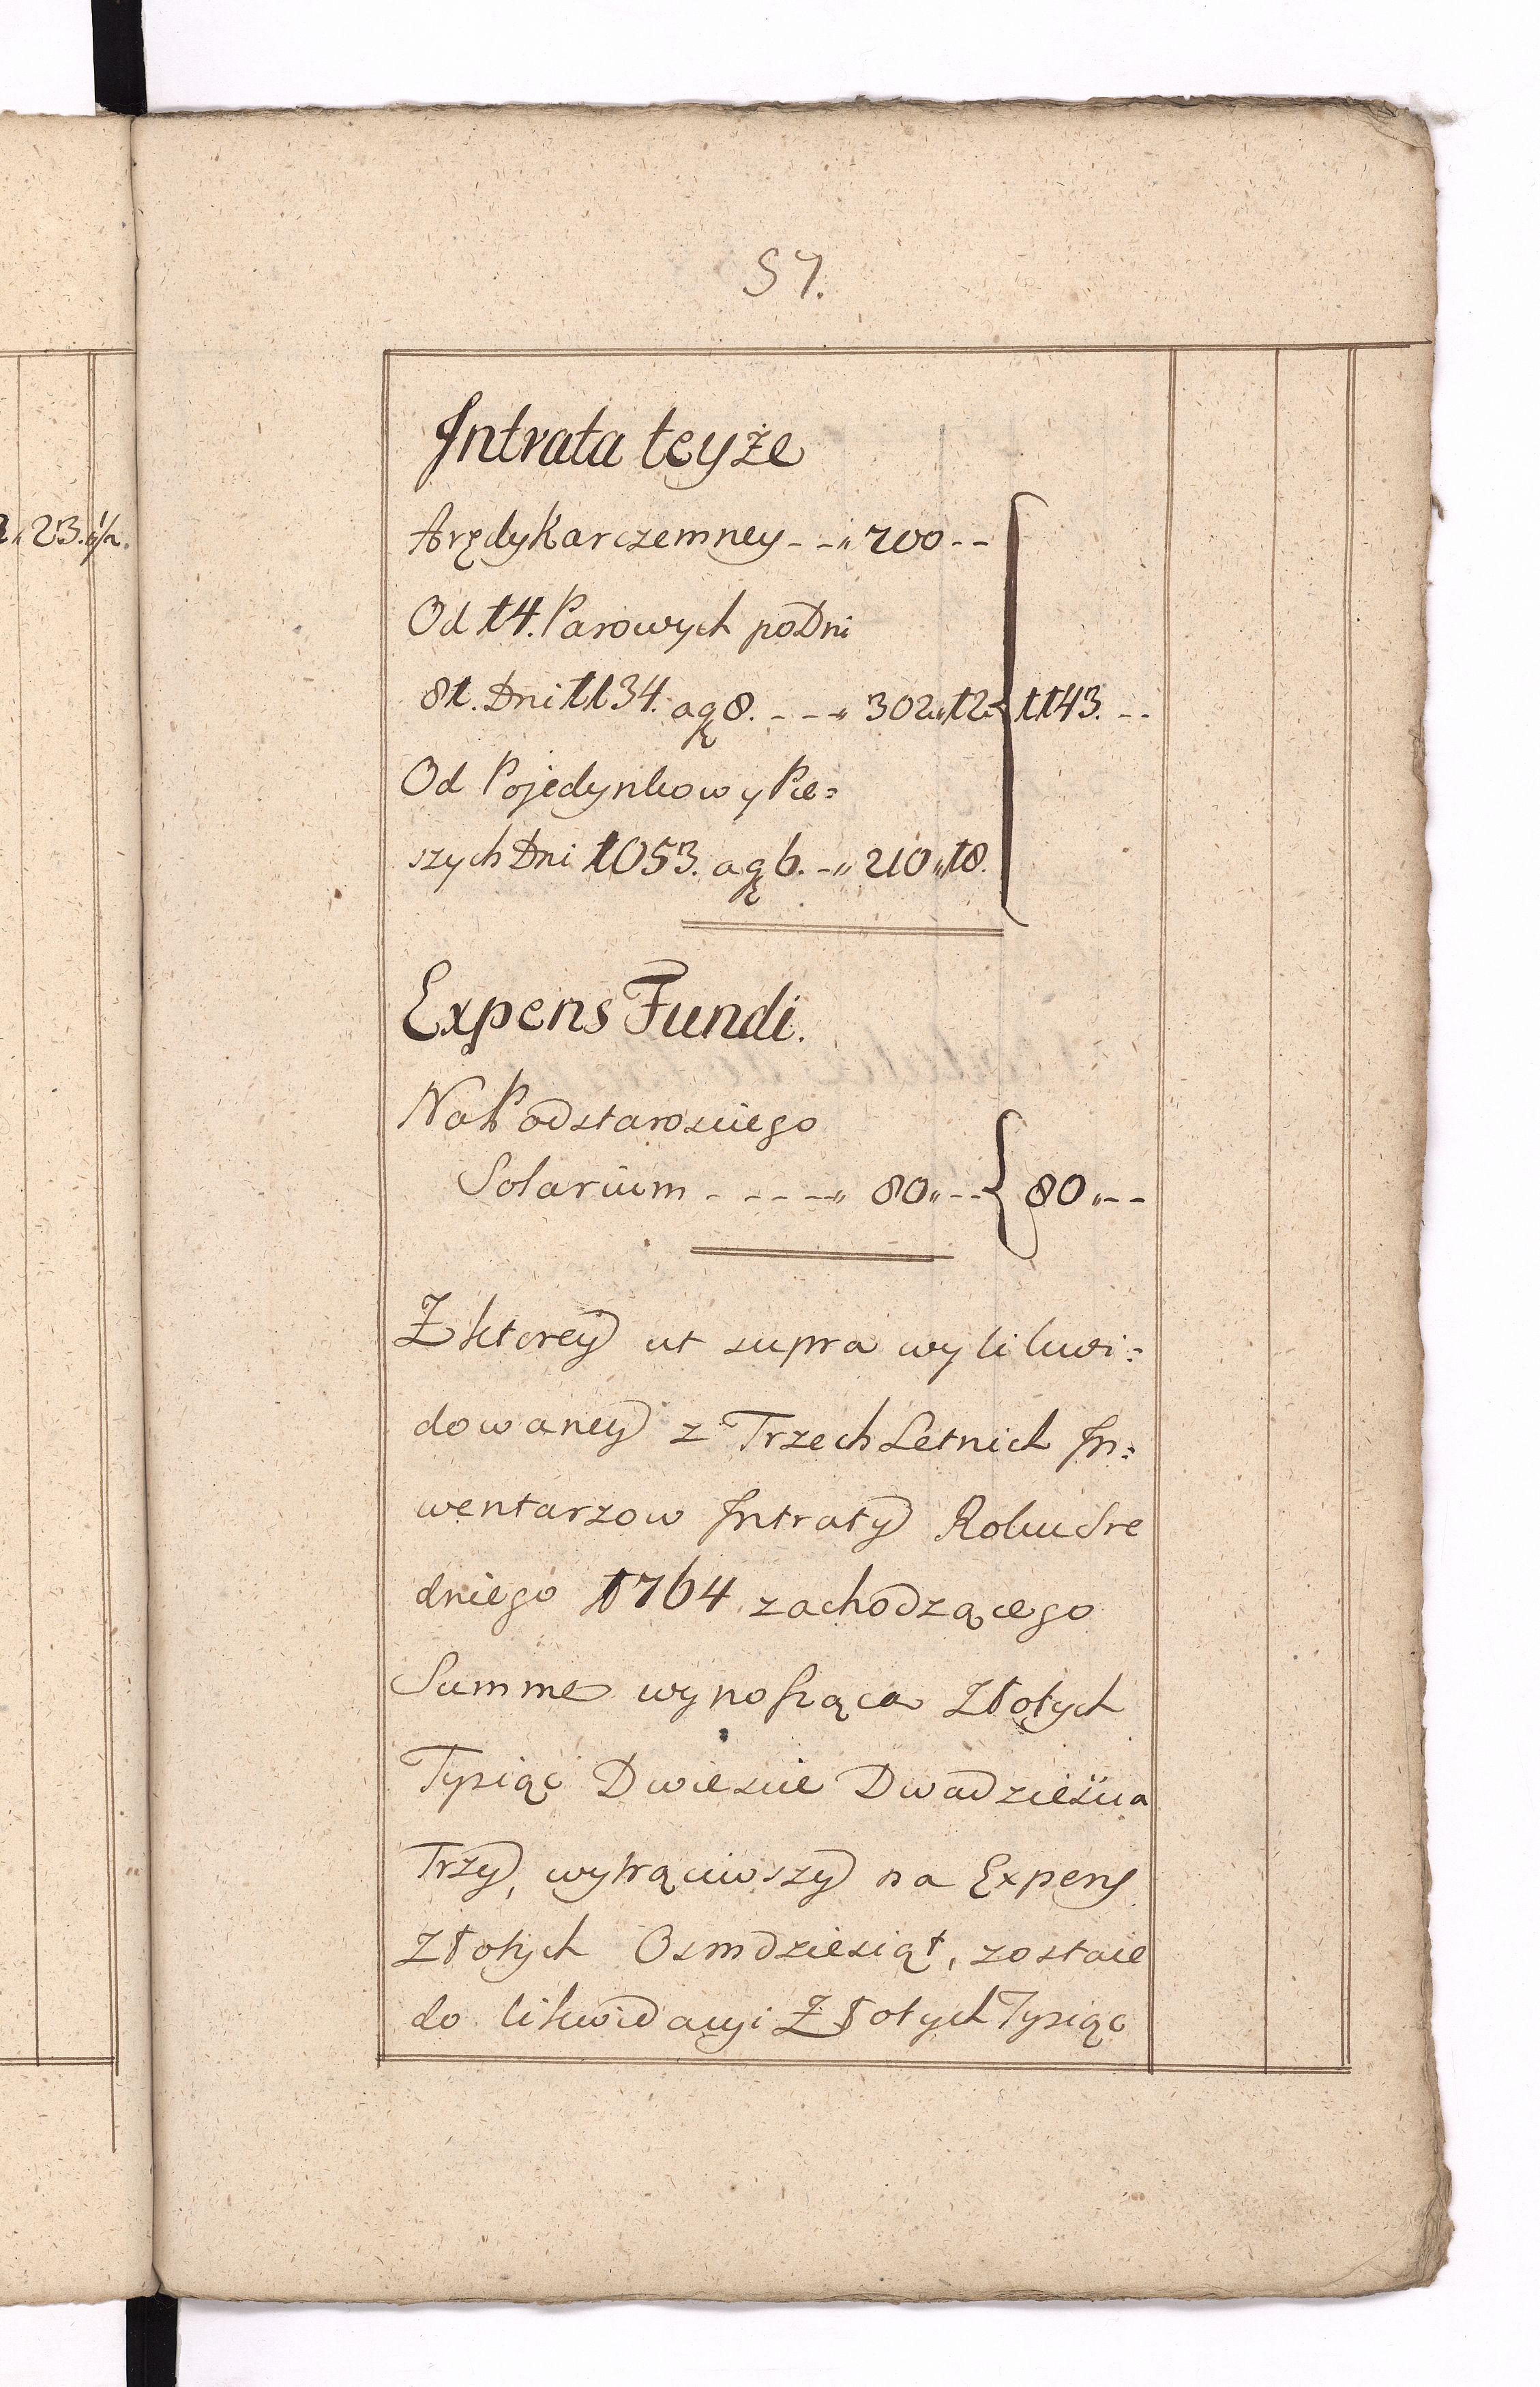 57.
2„23.½.
Intrata teyże
Arędy Karczemney - - „ 200 - -
Od 14. Parowych po Dni
81. Dni 1134. a gg 8. - - - „ 302„12. 1143. - -
Od Pojedynkow y Pie=
szych Dni 1053. a gg 6. - „ 210„18.
Expens Fundi.
Na Podstarosciego
Solarium - - - - „ 80„ - - 80„ - -
Z ktorey ut supra wylikwi=
dowaney z Trzech Letnich In=
wentarzow Intraty Roku Sre
dniego 1764 zachodzącego
Summe wynosząca Złotych
Tysiąc Dwiescie Dwadzieścia
Trzy, wytrąciwszy na Expens
Złotych Osmdziesiąt, zostaie
do likwidacyi Złotych Tysiąc